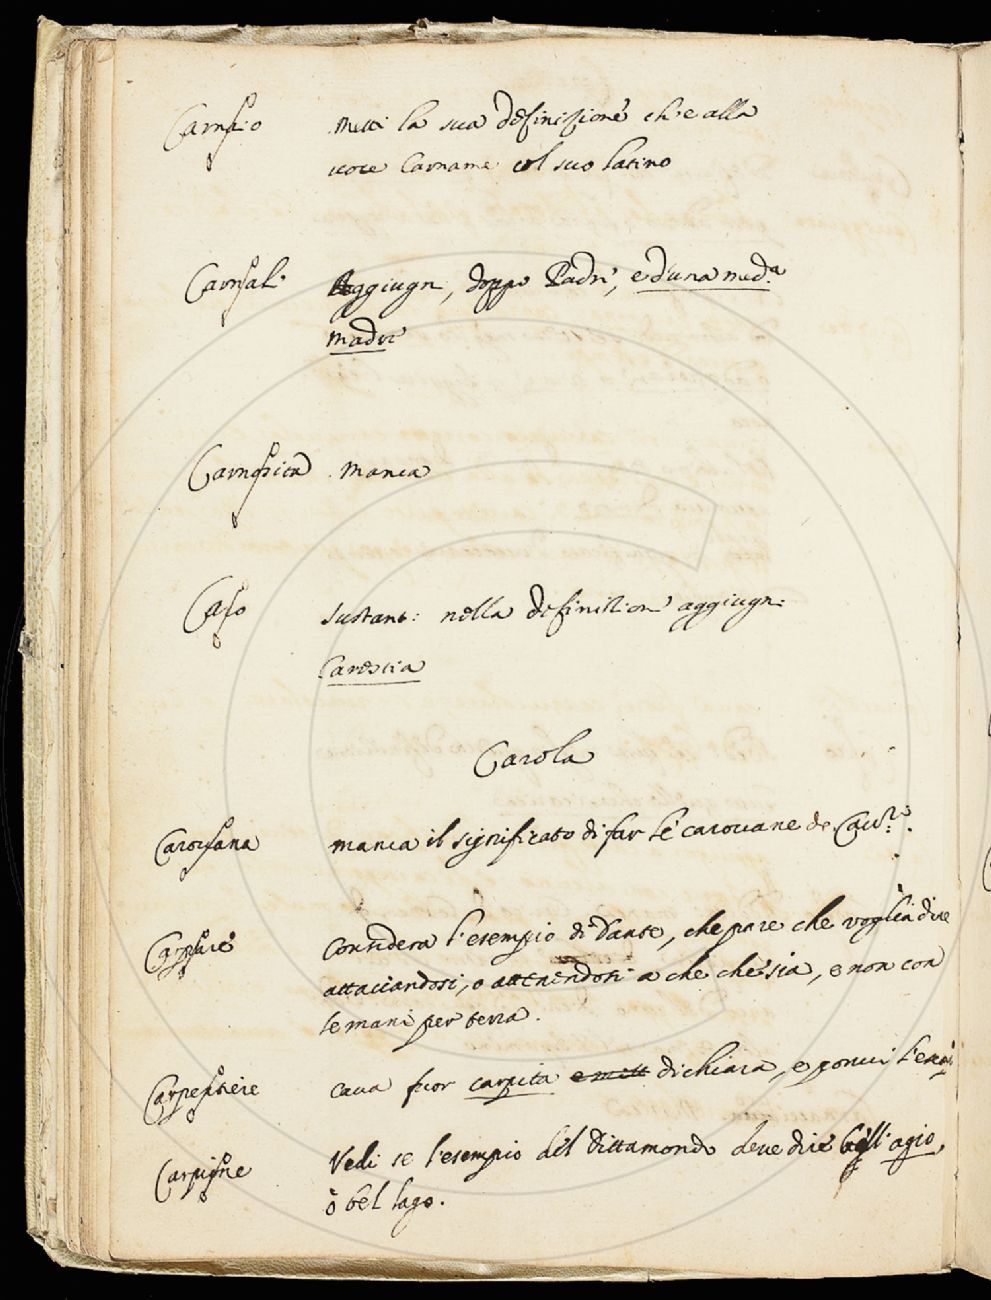 Carnaio metti la sua definizione ch'e alla
voce Carname col suo latino
Carnal. Aggiugn, doppo Padri, e d'una med.a
madre
Carnosità manca
Caro sustant: nella definition aggiugn:
Carestia
Carola
Carovana manca il significato di far le carovane de Cav.ri.
Carpare Considera l'esempio di Dante, che pare che voglia dire
attaciandosi, o attenendosi a che che sia, e non con
le mani per terra.
Carpentiere cava fuor carpita e mett dichiara, e ponvi l'esemp.
Carpigne Vedi se l'esempio del Dittamondo deve dire begli agio,
ò bel lago.